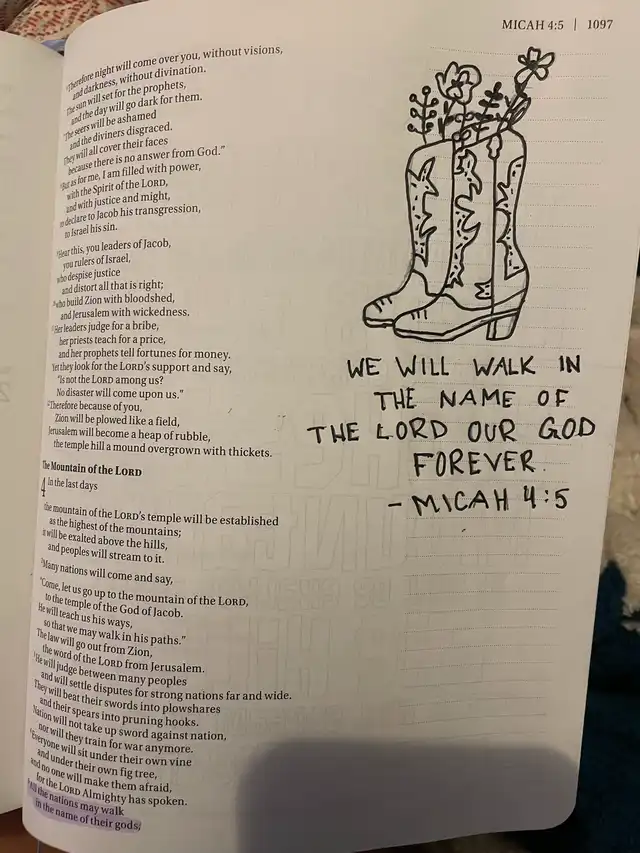 MICAH 4:5 | 1097
⁶Therefore night will come over you, without visions,
and darkness, without divination.
The sun will set for the prophets,
and the day will go dark for them.
⁷The seers will be ashamed
and the diviners disgraced.
They will all cover their faces
because there is no answer from God.”
⁸But as for me, I am filled with power,
with the Spirit of the LORD,
and with justice and might,
to declare to Jacob his transgression,
to Israel his sin.
⁹Hear this, you leaders of Jacob,
you rulers of Israel,
who despise justice
and distort all that is right;
¹⁰who build Zion with bloodshed,
and Jerusalem with wickedness.
¹¹Her leaders judge for a bribe,
her priests teach for a price,
and her prophets tell fortunes for money.
Yet they look for the LORD’s support and say,
“Is not the LORD among us?
No disaster will come upon us.”
¹²Therefore because of you,
Zion will be plowed like a field,
Jerusalem will become a heap of rubble,
the temple hill a mound overgrown with thickets.
The Mountain of the LORD
4 In the last days
the mountain of the LORD’s temple will be established
as the highest of the mountains;
it will be exalted above the hills,
and peoples will stream to it.
²Many nations will come and say,
“Come, let us go up to the mountain of the LORD,
to the temple of the God of Jacob.
He will teach us his ways,
so that we may walk in his paths.”
The law will go out from Zion,
the word of the LORD from Jerusalem.
³He will judge between many peoples
and will settle disputes for strong nations far and wide.
They will beat their swords into plowshares
and their spears into pruning hooks.
Nation will not take up sword against nation,
nor will they train for war anymore.
⁴Everyone will sit under their own vine
and under their own fig tree,
and no one will make them afraid,
for the LORD Almighty has spoken.
⁵All the nations may walk
in the name of their gods,
WE WILL WALK IN
THE NAME OF
THE LORD OUR GOD
FOREVER.
- MICAH 4:5